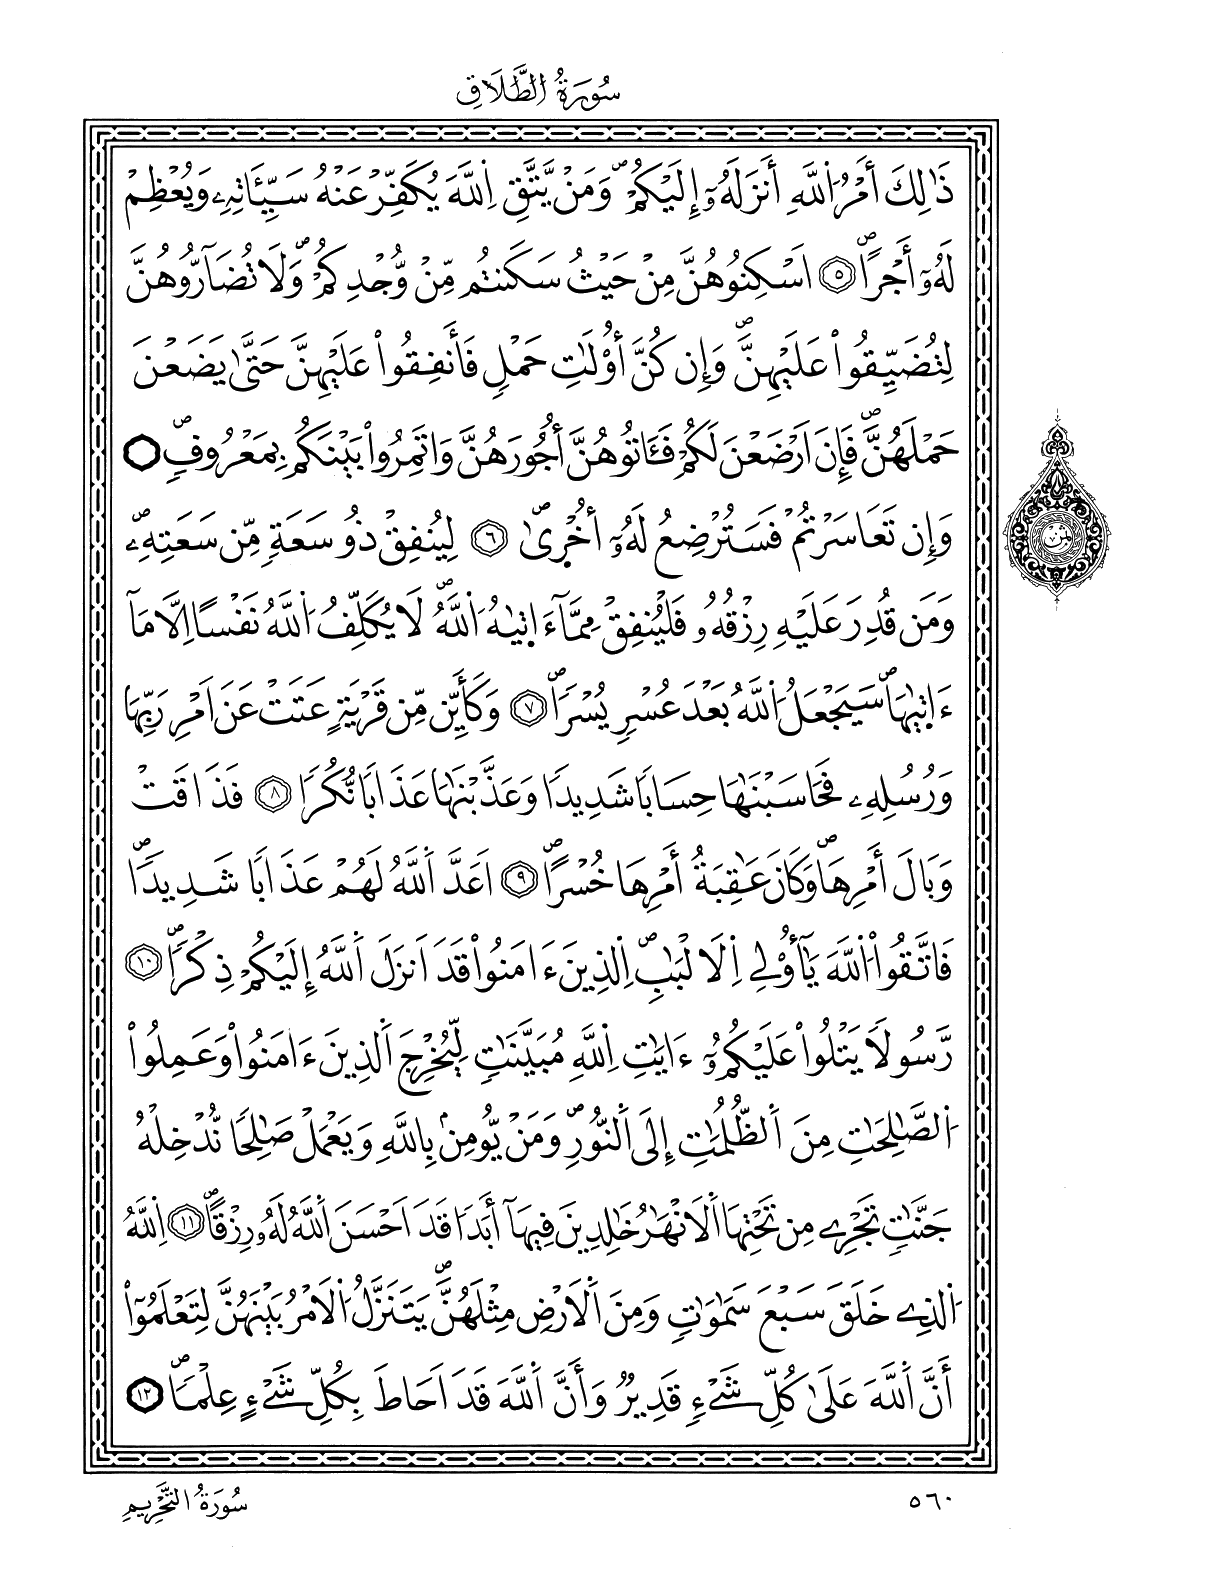 سُورَةُ الطَّلَاقِ
ذَٰلِكَ أَمْرُ اُ۬للَّهِ أَنزَلَهُۥٓ إِلَيْكُمْۖ وَمَنْ يَّتَّقِ اِ۬للَّهَ يُكَفِّرْ عَنْهُ سَيِّـَٔاتِهِۦ وَيُعْظِمْ
لَهُۥٓ أَجْراًۖ ٥ اَسْكِنُوهُنَّ مِنْ حَيْثُ سَكَنتُم مِّنْ وُّجْدِكُمْۖ وَلَا تُضَآرُّوهُنَّ
لِتُضَيِّقُواْ عَلَيْهِنَّۖ وَإِن كُنَّ أُوْلَٰتِ حَمْلٖ فَأَنفِقُواْ عَلَيْهِنَّ حَتَّىٰ يَضَعْنَ
حَمْلَهُنَّۖ فَإِنَ اَرْضَعْنَ لَكُمْ فَـَٔاتُوهُنَّ أُجُورَهُنَّ وَاتَمِرُواْ بَيْنَكُم بِمَعْرُوفٖۖ
وَإِن تَعَاسَرْتُمْ فَسَتُرْضِعُ لَهُۥٓ أُخْر۪ىٰۖ ٦ لِيُنفِقْ ذُو سَعَةٖ مِّن سَعَتِهِۦۖ
وَمَن قُدِرَ عَلَيْهِ رِزْقُهُۥ فَلْيُنفِقْ مِمَّآ ءَات۪يٰهُ اُ۬للَّهُۖ لَا يُكَلِّفُ اُ۬للَّهُ نَفْساً اِلَّا مَآ
ءَات۪يٰهَاۖ سَيَجْعَلُ اُ۬للَّهُ بَعْدَ عُسْرٖ يُسْراًۖ ٧ وَكَأَيِّن مِّن قَرْيَةٍ عَتَتْ عَنَ اَمْرِ رَبِّهَا
وَرُسُلِهِۦ فَحَاسَبْنَٰهَا حِسَاباٗ شَدِيداٗ وَعَذَّبْنَٰهَا عَذَاباٗ نُّكُراٗ ٨ فَذَاقَتْ
وَبَالَ أَمْرِهَاۖ وَكَانَ عَٰقِبَةُ أَمْرِهَا خُسْراًۖ ٩ اَعَدَّ اَ۬للَّهُ لَهُمْ عَذَاباٗ شَدِيداٗۖ
فَاتَّقُواْ اُ۬للَّهَ يَٰٓأُوْلِے اِ۬لَالْبَٰبِۖ اِ۬لذِينَ ءَامَنُواْ قَدَ اَنزَلَ اَ۬للَّهُ إِلَيْكُمْ ذِكْراٗۖ ١٠
رَّسُولاٗ يَتْلُواْ عَلَيْكُمُۥٓ ءَايَٰتِ اِ۬للَّهِ مُبَيَّنَٰتٖ لِّيُخْرِجَ اَ۬لذِينَ ءَامَنُواْ وَعَمِلُواْ
اُ۬لصَّٰلِحَٰتِ مِنَ اَ۬لظُّلُمَٰتِ إِلَى اَ۬لنُّورِۖ وَمَنْ يُّومِنۢ بِاللَّهِ وَيَعْمَلْ صَٰلِحاٗ نُّدْخِلْهُ
جَنَّٰتٖ تَجْرِے مِن تَحْتِهَا اَ۬لَانْهَٰرُ خَٰلِدِينَ فِيهَآ أَبَداٗ قَدَ اَحْسَنَ اَ۬للَّهُ لَهُۥ رِزْقاًۖ ١١ اِ۬للَّهُ
اُ۬لذِے خَلَقَ سَبْعَ سَمَٰوَٰتٖ وَمِنَ اَ۬لَارْضِ مِثْلَهُنَّۖ يَتَنَزَّلُ اُ۬لَامْرُ بَيْنَهُنَّ لِتَعْلَمُوٓاْ
أَنَّ اَ۬للَّهَ عَلَىٰ كُلِّ شَےْءٖ قَدِيرٞ وَأَنَّ اَ۬للَّهَ قَدَ اَحَاطَ بِكُلِّ شَےْءٍ عِلْماٗۖ ١٢
ثمن
٥٦٠
سُورَةُ التَّحْرِيمِ